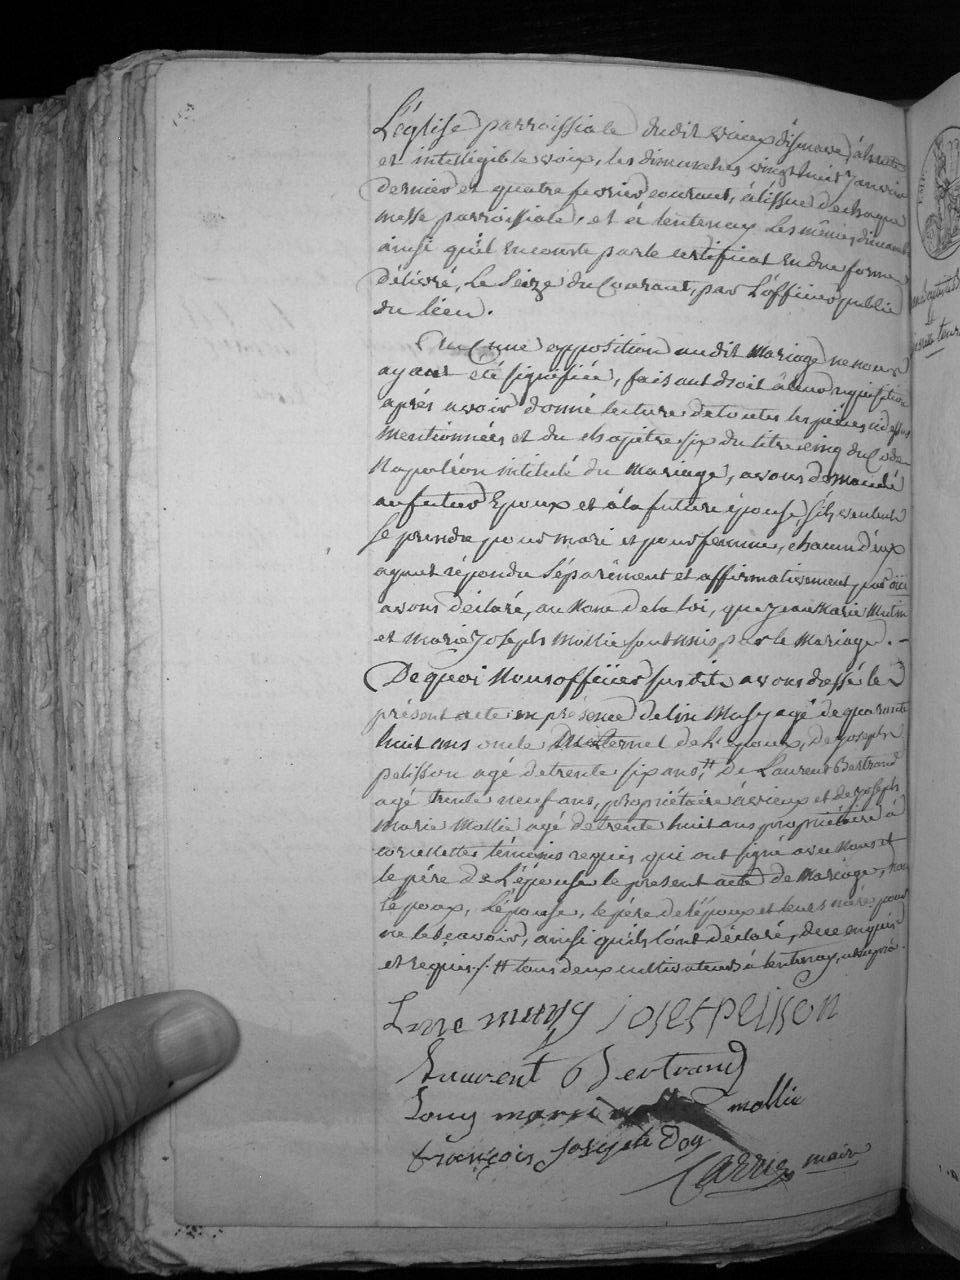 L'église parroissiale dudit vieux d'ismave, à haute
et intelligible voix, les dimanches vingt huit Janvier
dernier et quatre fevrier courant, à l'issue de chaque
messe parroissiale, et à lentenay les mêmes dimanches
ainsi qu'il en conste par le certificat en due forme
délivré, le seize du Courant, par L'officier public
du lieu.
Aucune opposition audit mariage ne nous
ayant été signifiée, faisant droit à leur réquisition
après avoir donné lecture de toutes les pièces ci dessus
mentionnées et du chapitre six du titre cinq du Code
Napoléon intitulé du mariage, avons demandé
au futur Epoux et à la future épouse, s'ils veulent
se prendre pour mari et pour femme, chacun d'eux
ayant répondu séparément et affirmativement par oüi
avons déclaré, au nom de la loi, que Jean Marie Mutin
et Marie Joseph Mollie sont unis par le mariage. -
De quoi Nous officier susdit avons dressé le
présent acte en présence de lin Musy agé de quarante
huit ans oncle Maternel de l'époux, de joseph
pelisson agé de trente six ans, # de Laurent Bertrand
agé trente neuf ans, propriétaire à vieux et de joseph
marie Mollie agé de trente huit ans propriétaire à
témoins requis qui ont signé avec nous et
le père de L'épouse le present acte de mariage, non
l'époux, l'épouse, le père de l'époux et leurs mères pour
ne le sçavoir, ainsi qu'ils l'ont déclaré, de ce enquis
et requis ./. # tous deux cultivateurs à lentenay,
musy josef pelisson
Laurent Bertrand
marie mollie
françois Joseph
Carrier maire